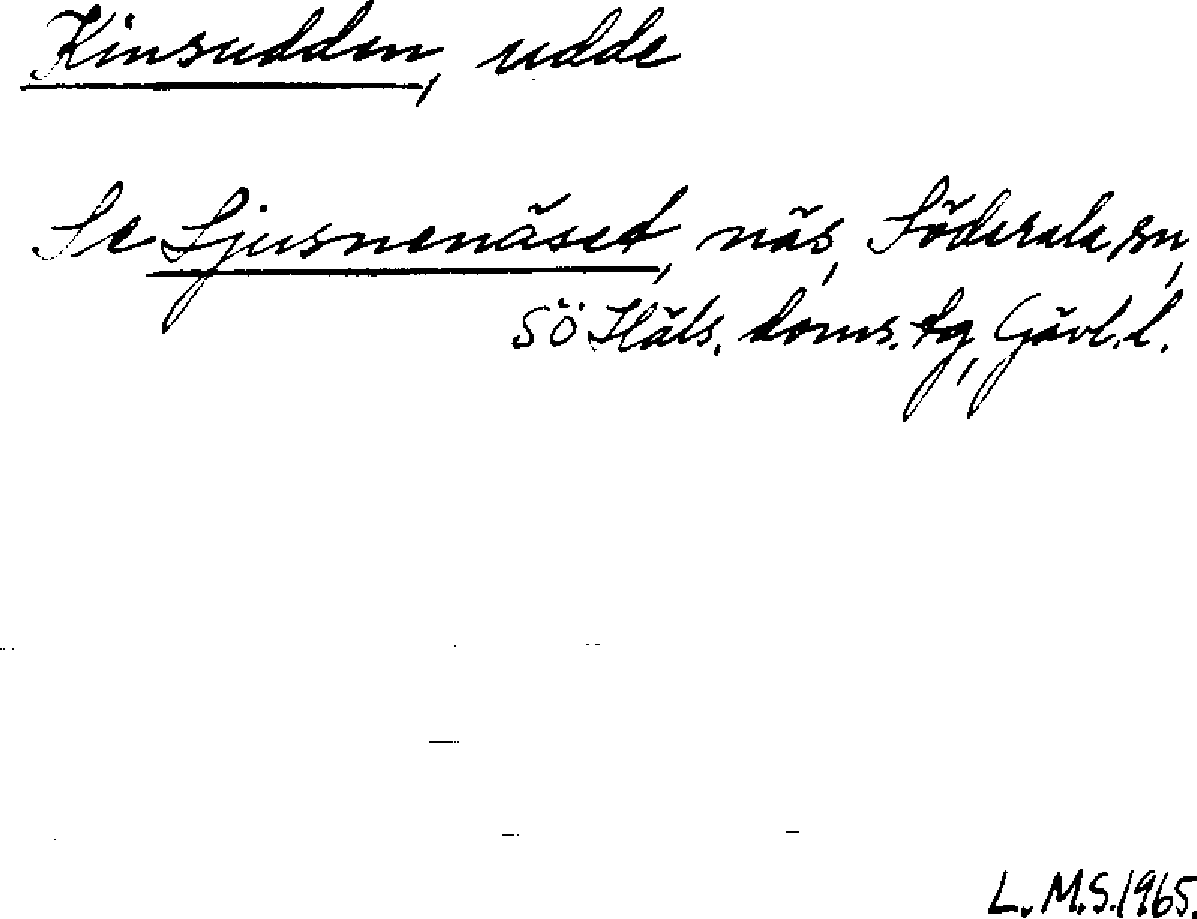 Kinsudden, udde
Se Ljusnenäset, näs, Söderala sn,
SÖ Häls. doms. tg, Gävl. l.
L. M. S. 1965.